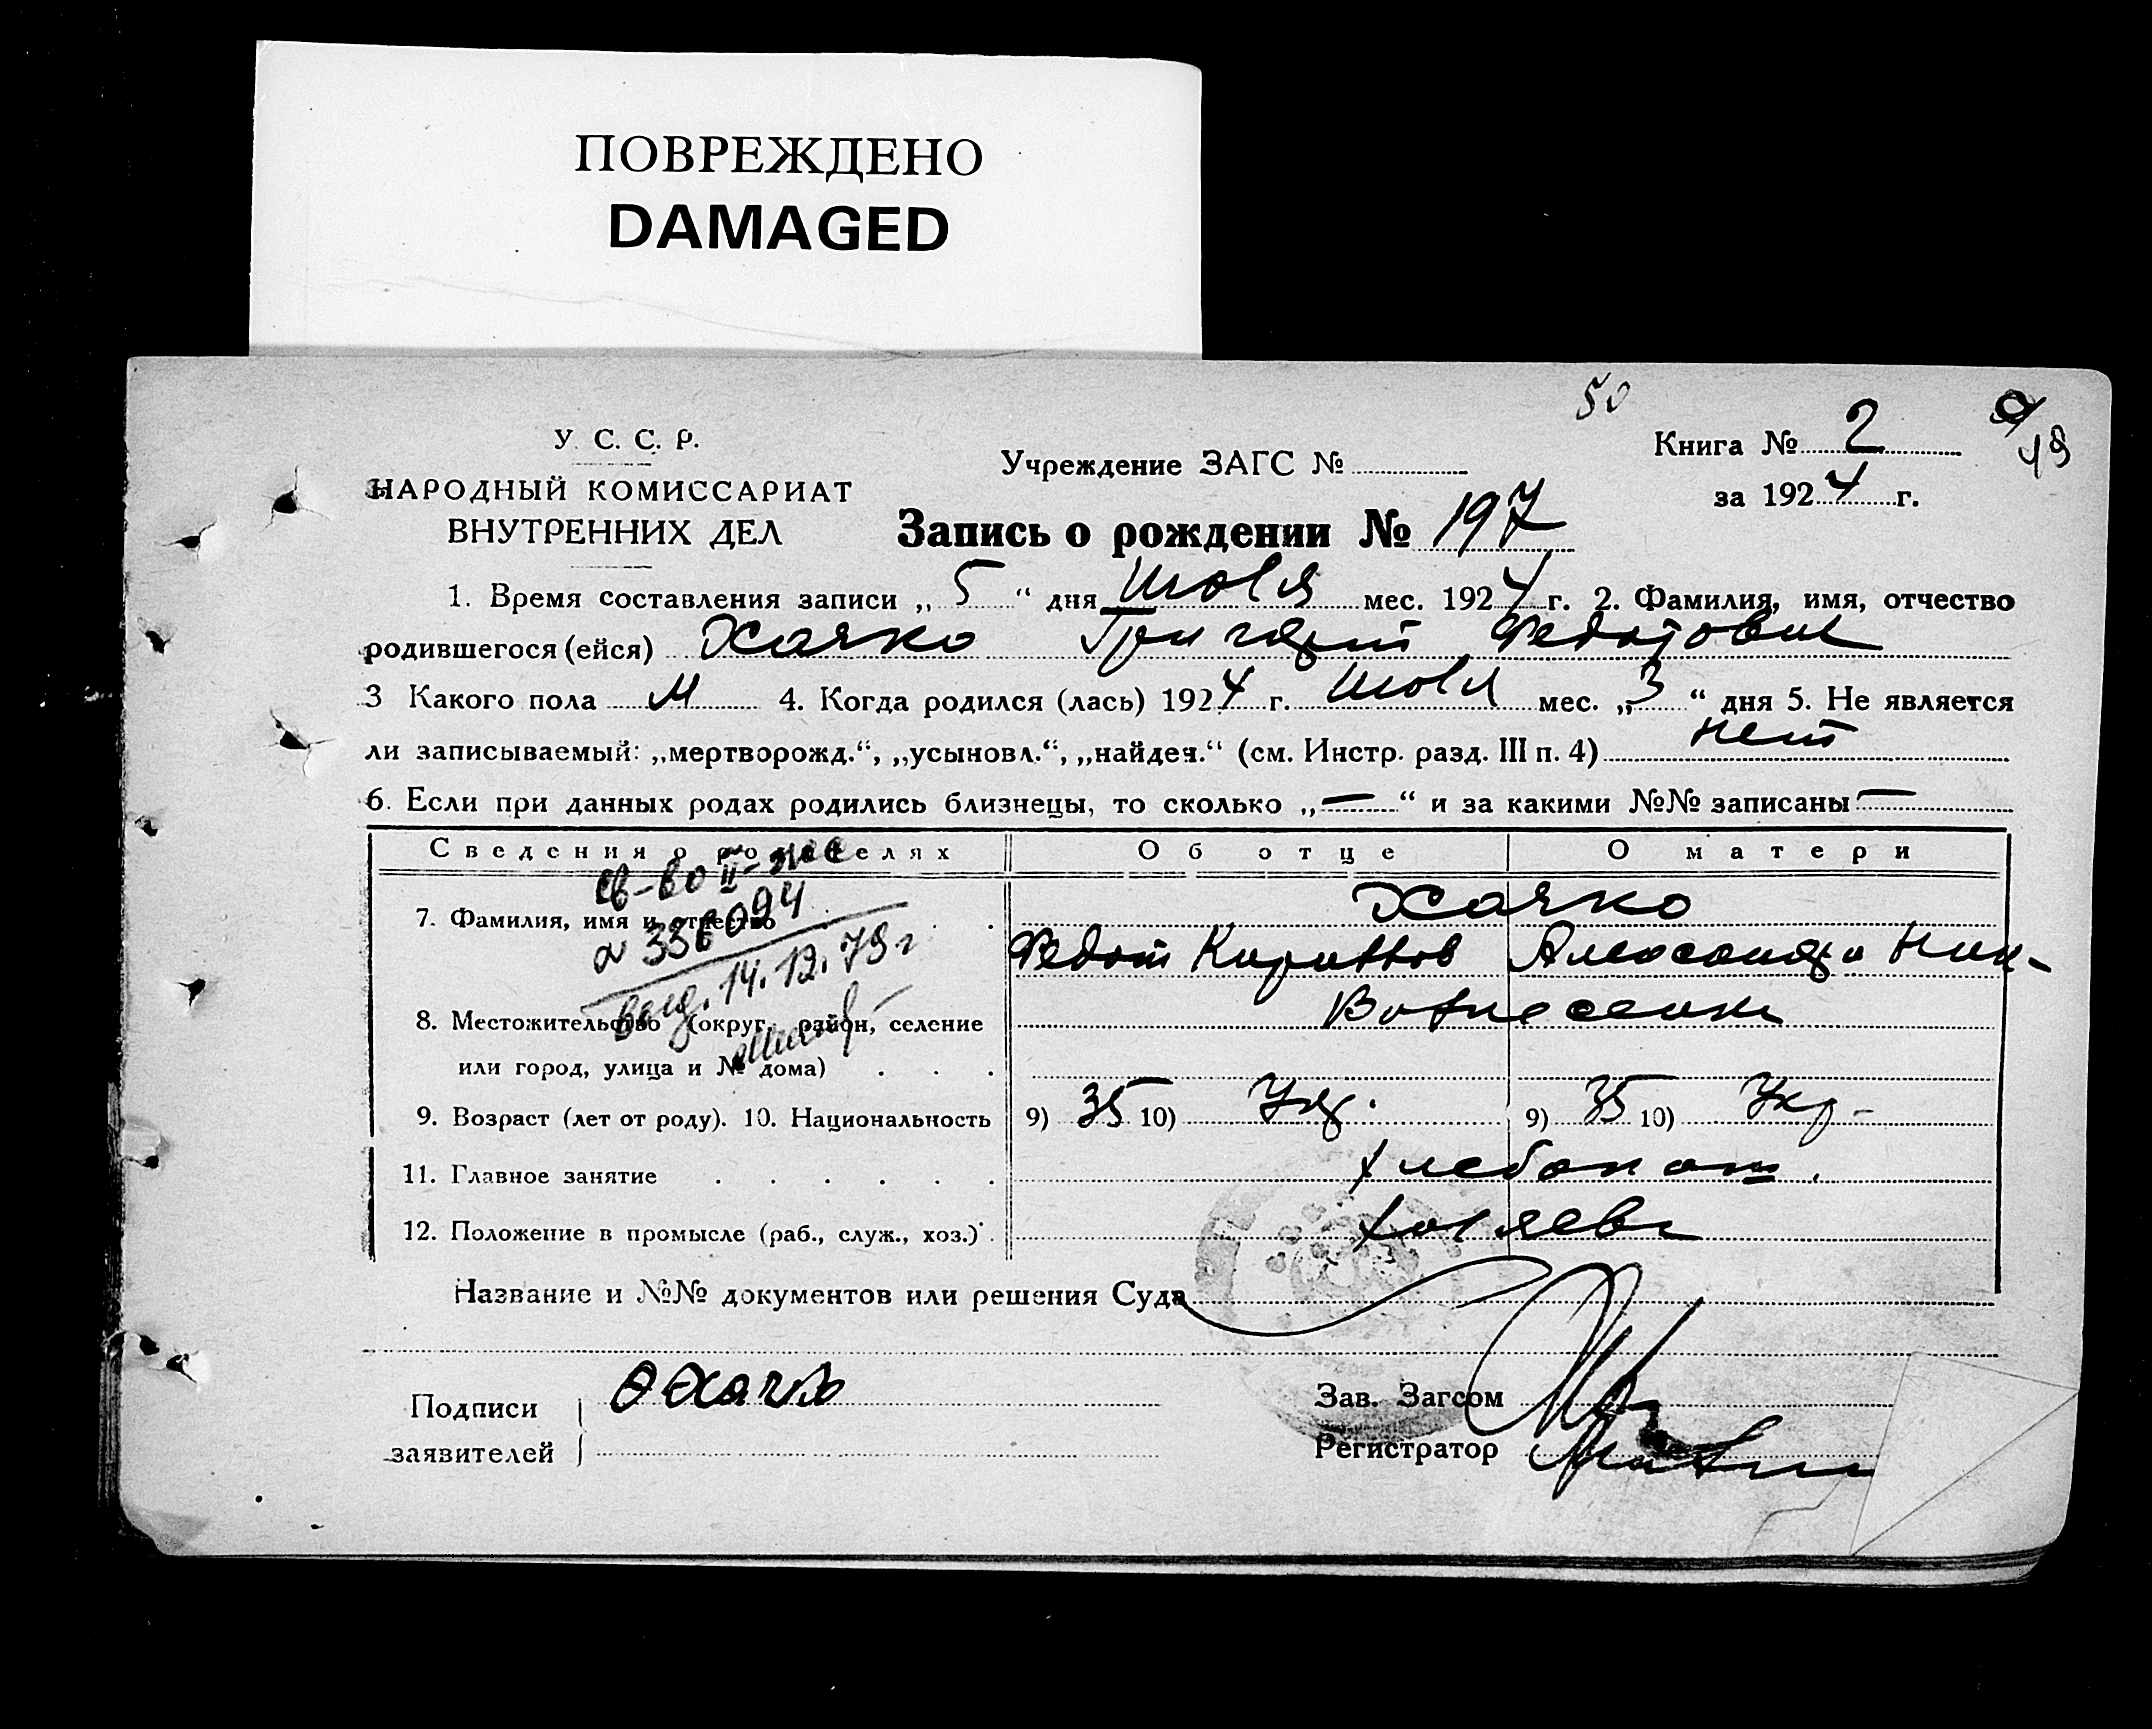 ПОВРЕЖДЕНО
DAMAGED
50
У. С. С. Р.
НАРОДНЫЙ КОМИССАРИАТ
ВНУТРЕННИХ ДЕЛ
Учреждение ЗАГС №
Книга № 2
49
за 1924 г.
Запись о рождении № 197
1. Время составления записи „ 5 “ дня июля мес. 1924 г. 2. Фамилия, имя, отчество
родившегося (ейся) Григорий Федотович
3 Какого пола М 4. Когда родился (лась) 1924 г. июля мес. „3“ дня 5. Не является
ли записываемый: „мертворожд.“, „усыновл.“, „найден.“ (см. Инстр. разд. III п. 4) нет
6. Если при данных родах родились близнецы, то сколько „—“ и за какими №№ записаны —
Сведения о родителях Об отце О матери
св-во II-
7. Фамилия, имя и отчество
№ 336094
Федот Александра Ник-
14.12.79 г
8. Местожительство (округ, район, селение
или город, улица и № дома)
9. Возраст (лет от роду). 10. Национальность 9) 35 10) Укр. 9) 35 10) Укр-
11. Главное занятие хлебопаш.
12. Положение в промысле (раб., служ., хоз.) хозяева
Название и №№ документов или решения Суда
Подписи
заявителей
Зав. Загсом
Регистратор